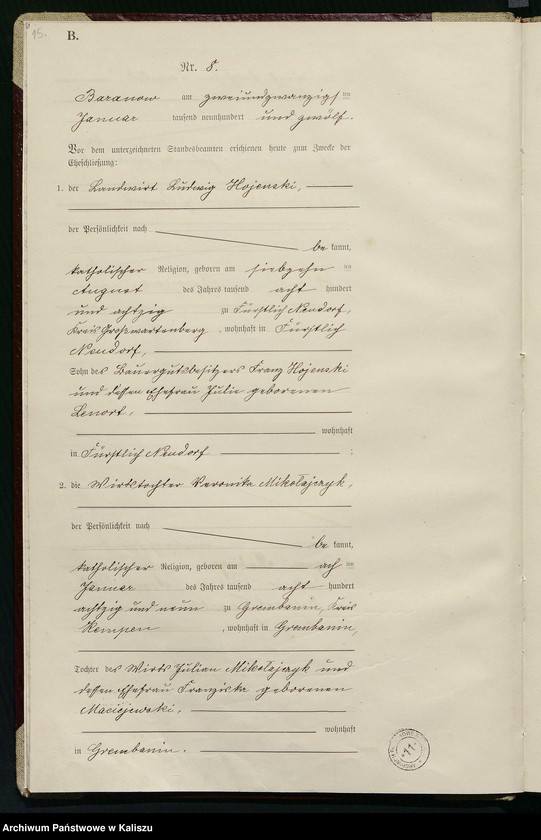 15.
B.
Nr. 8.
Baranow am zweiundzwanzigsten
Januar tausend neunhundert und zwölf.
Vor dem unterzeichneten Standesbeamten erschienen heute zum Zwecke der
Eheschließung:
1. der Landwirt Ludwig Hojenski,
der Persönlichkeit nach
be kannt,
katholischer Religion, geboren am siebzehn ten
August des Jahres tausend acht hundert
und achtzig zu Fürstlich Neudorf,
Kreis Großwartenberg, wohnhaft in Fürstlich
Neudorf,
Sohn des Bauergutsbesitzers Franz Hojenski
und dessen Ehefrau Julie geborenen
Lenort,
wohnhaft
in Fürstlich Neudorf ;
2. die Wirtstochter Veronika Mikołajczyk,
der Persönlichkeit nach
be kannt,
katholischer Religion, geboren am ach ten
Januar des Jahres tausend acht hundert
achtzig und neun zu Grembanin, Kreis
Kempen, wohnhaft in Grembanin,
Tochter des Wirts Julian Mikołajczyk und
dessen Ehefrau Franziska geborenen
Maciejewski,
wohnhaft
in Grembanin.
11
Archiwum Państwowe w Kaliszu